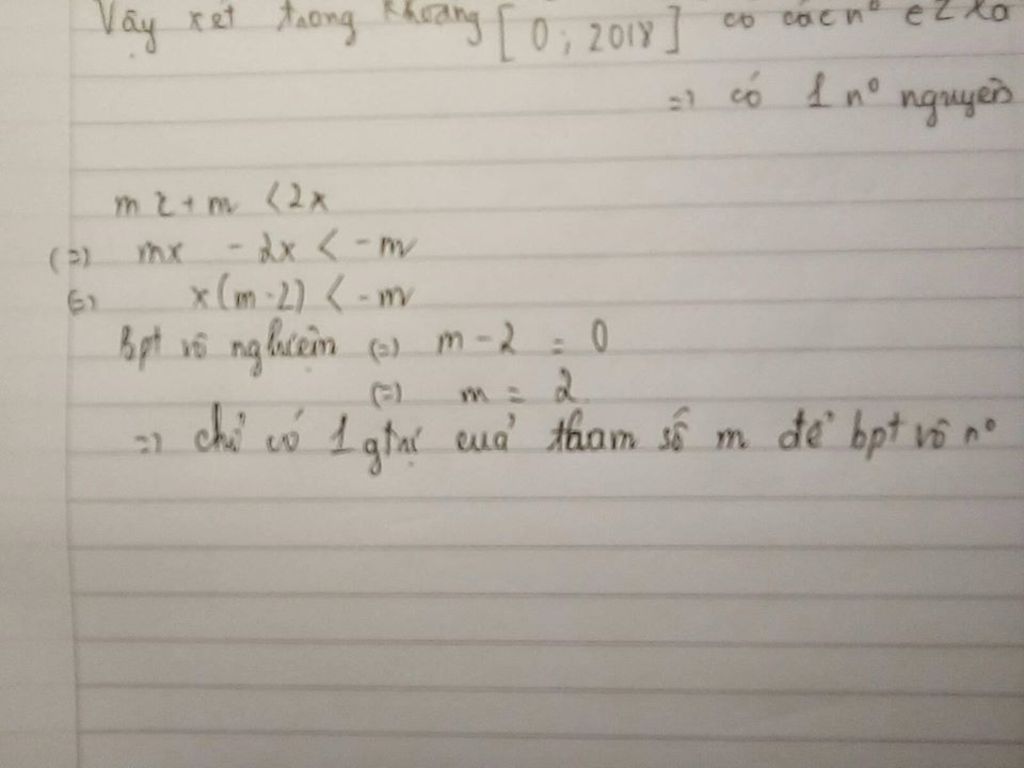 Vậy xét trong khoang [0; 2018] có các nº e Z
=) có 1 nº nguyên
mx + m < 2x
(=) mx - 2x < -m
(=) x(m-2) < -m
Bpt vô nghiệm (=) m - 2 = 0
(=) m = 2
=) chỉ có 1 gtrị cuả tham số m để bpt vô nº